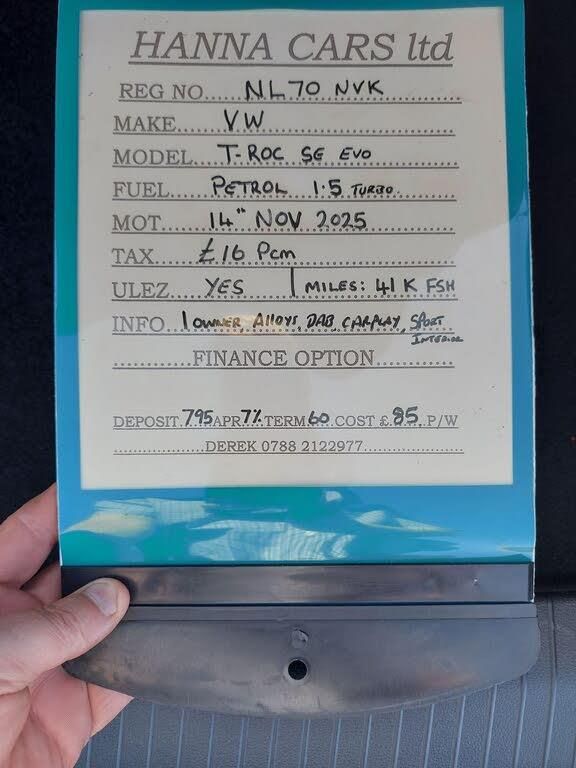 HANNA CARS ltd
REG NO.....NL70 NVK
MAKE......VW
MODEL...T-ROC SE EVO
FUEL......PETROL 1.5 TURBO.
MOT.......14" NOV 2025
TAX.......£16 Pcm
ULEZ.....YES | MILES: 41K FSH
INFO...1 OWNER, ALLOYS, DAB, CARPLAY, SPORT
INTERIOR
..............FINANCE OPTION..............
DEPOSIT.795.APR.7%.TERM.60..COST £.85..P/W
................DEREK 0788 2122977................